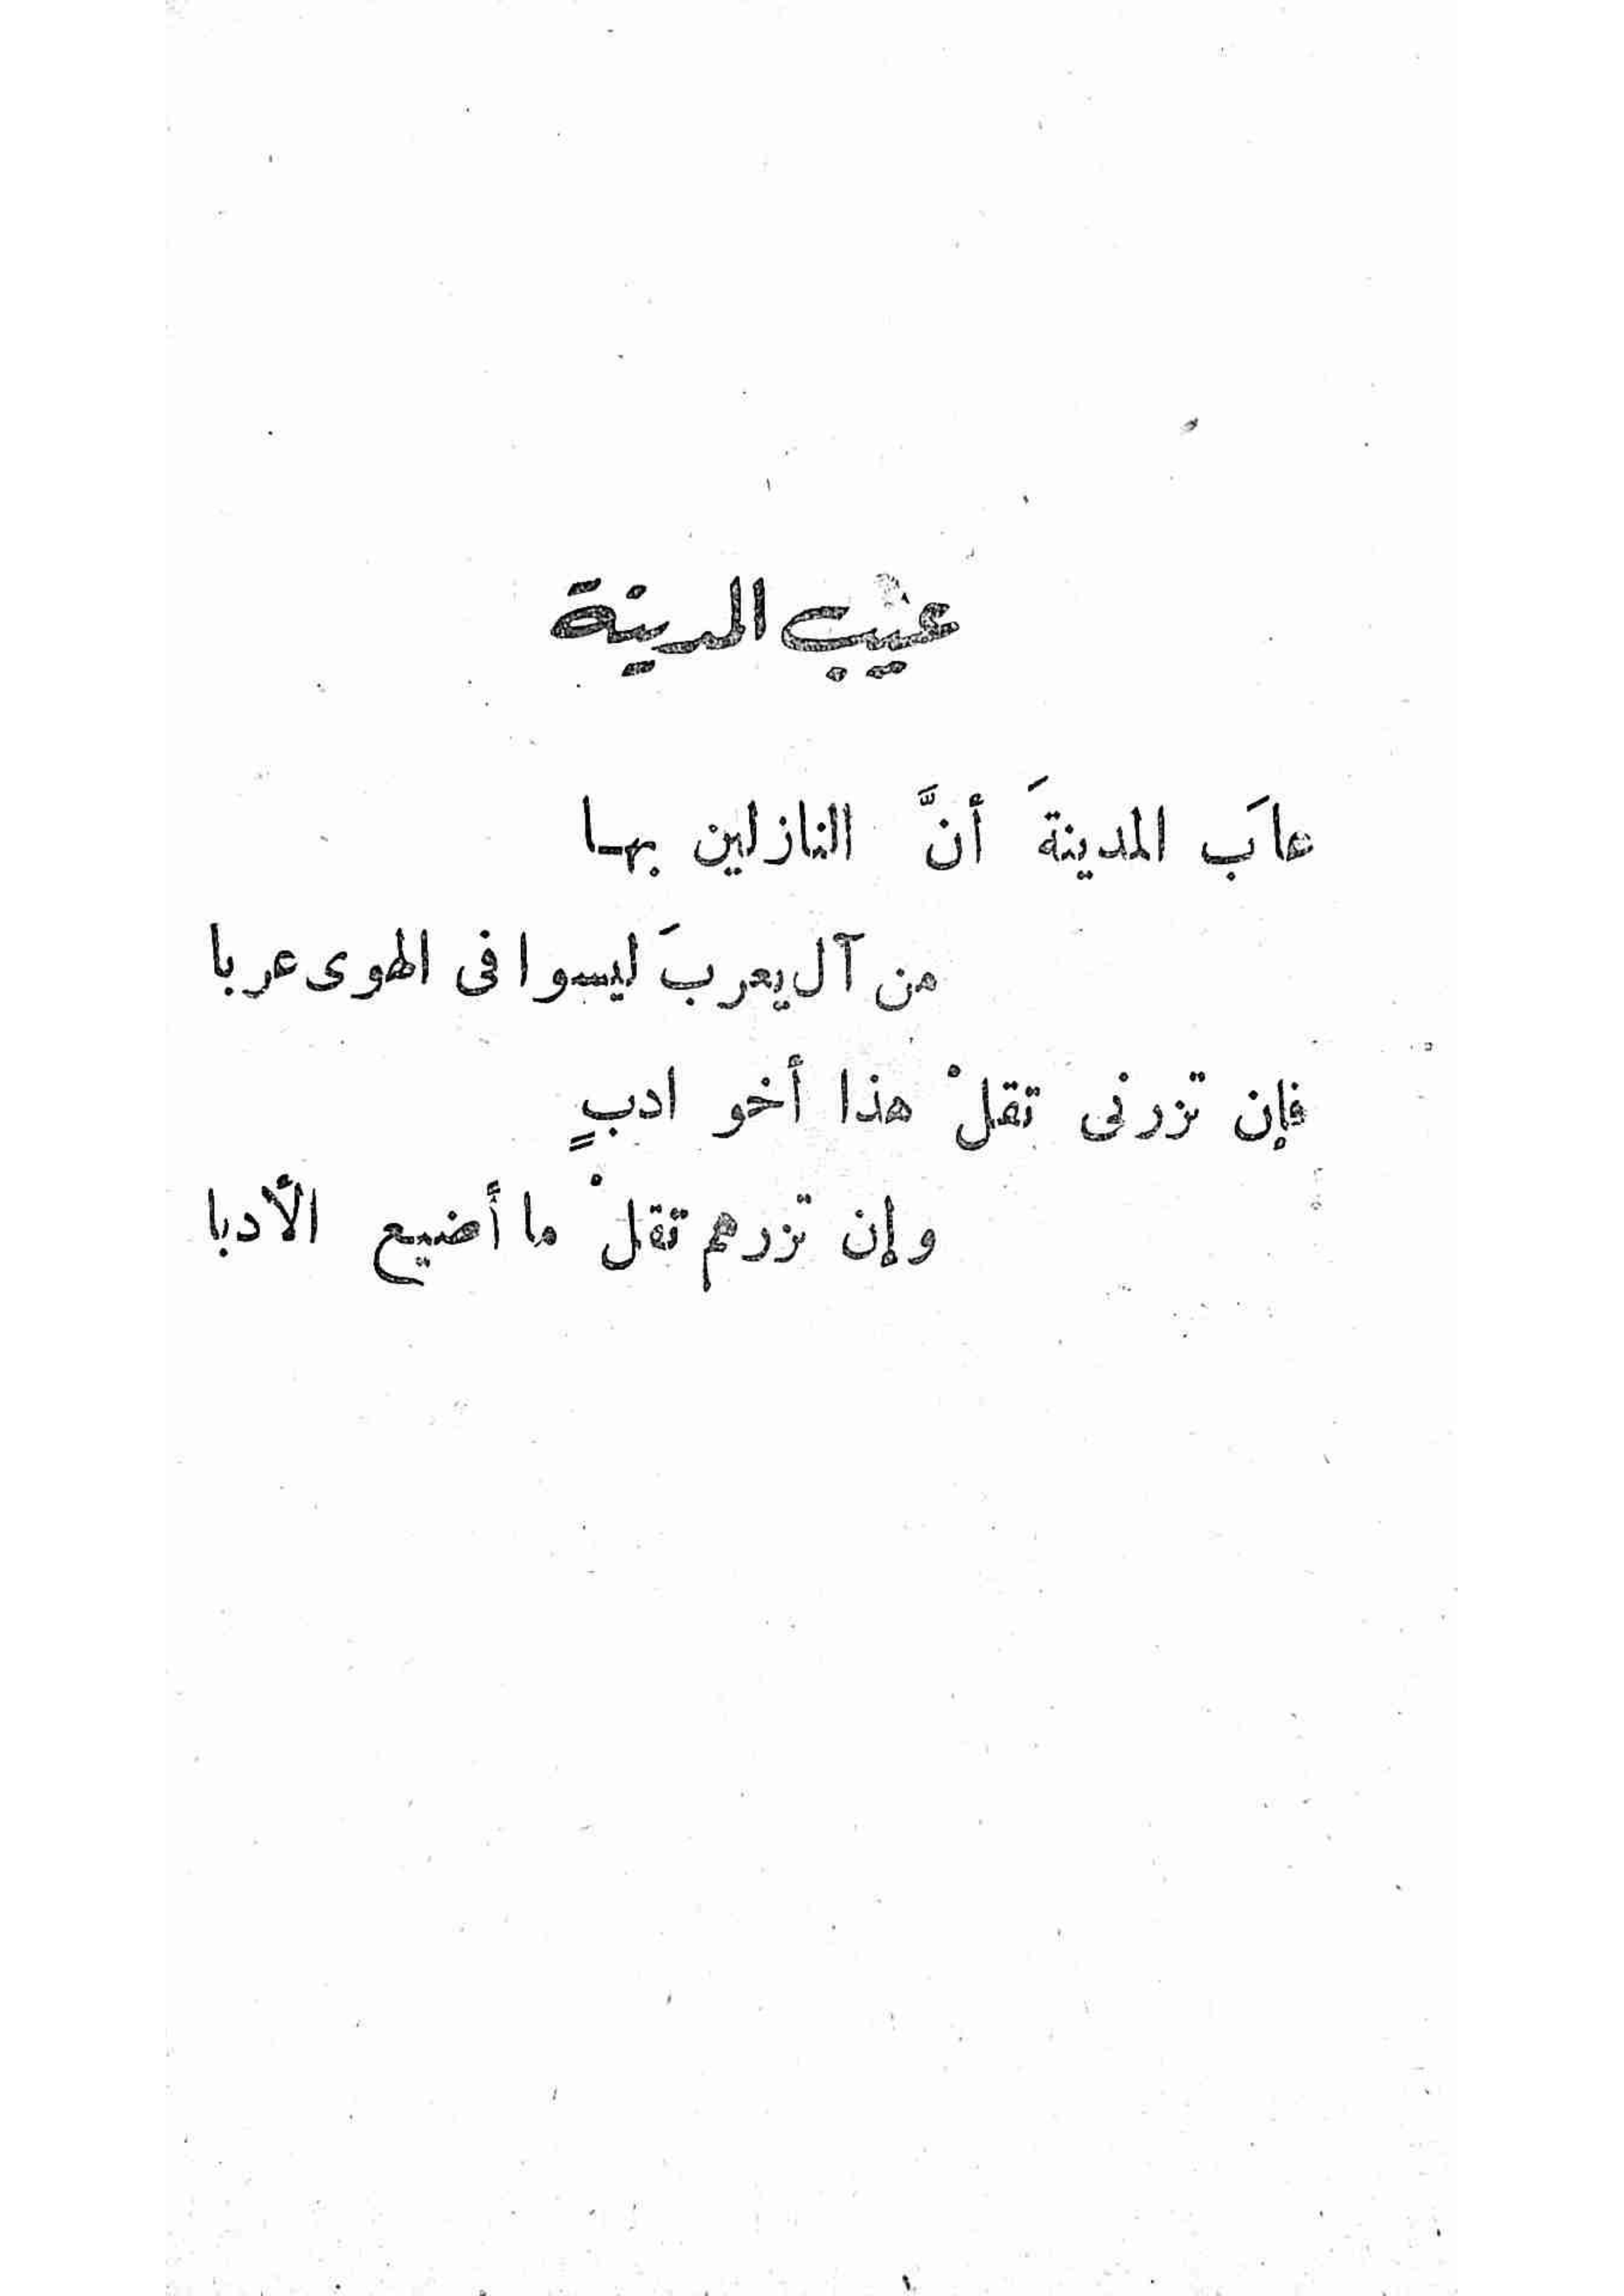 عيب المدينة
عابَ المدينةَ أنَّ النازلين بها
من آل يعربَ ليسوا فى الهوى عربا
فإن تزرنى تقلْ هذا أخو ادبٍ
وإن تزرهم تقلْ ما أضيع الأدبا